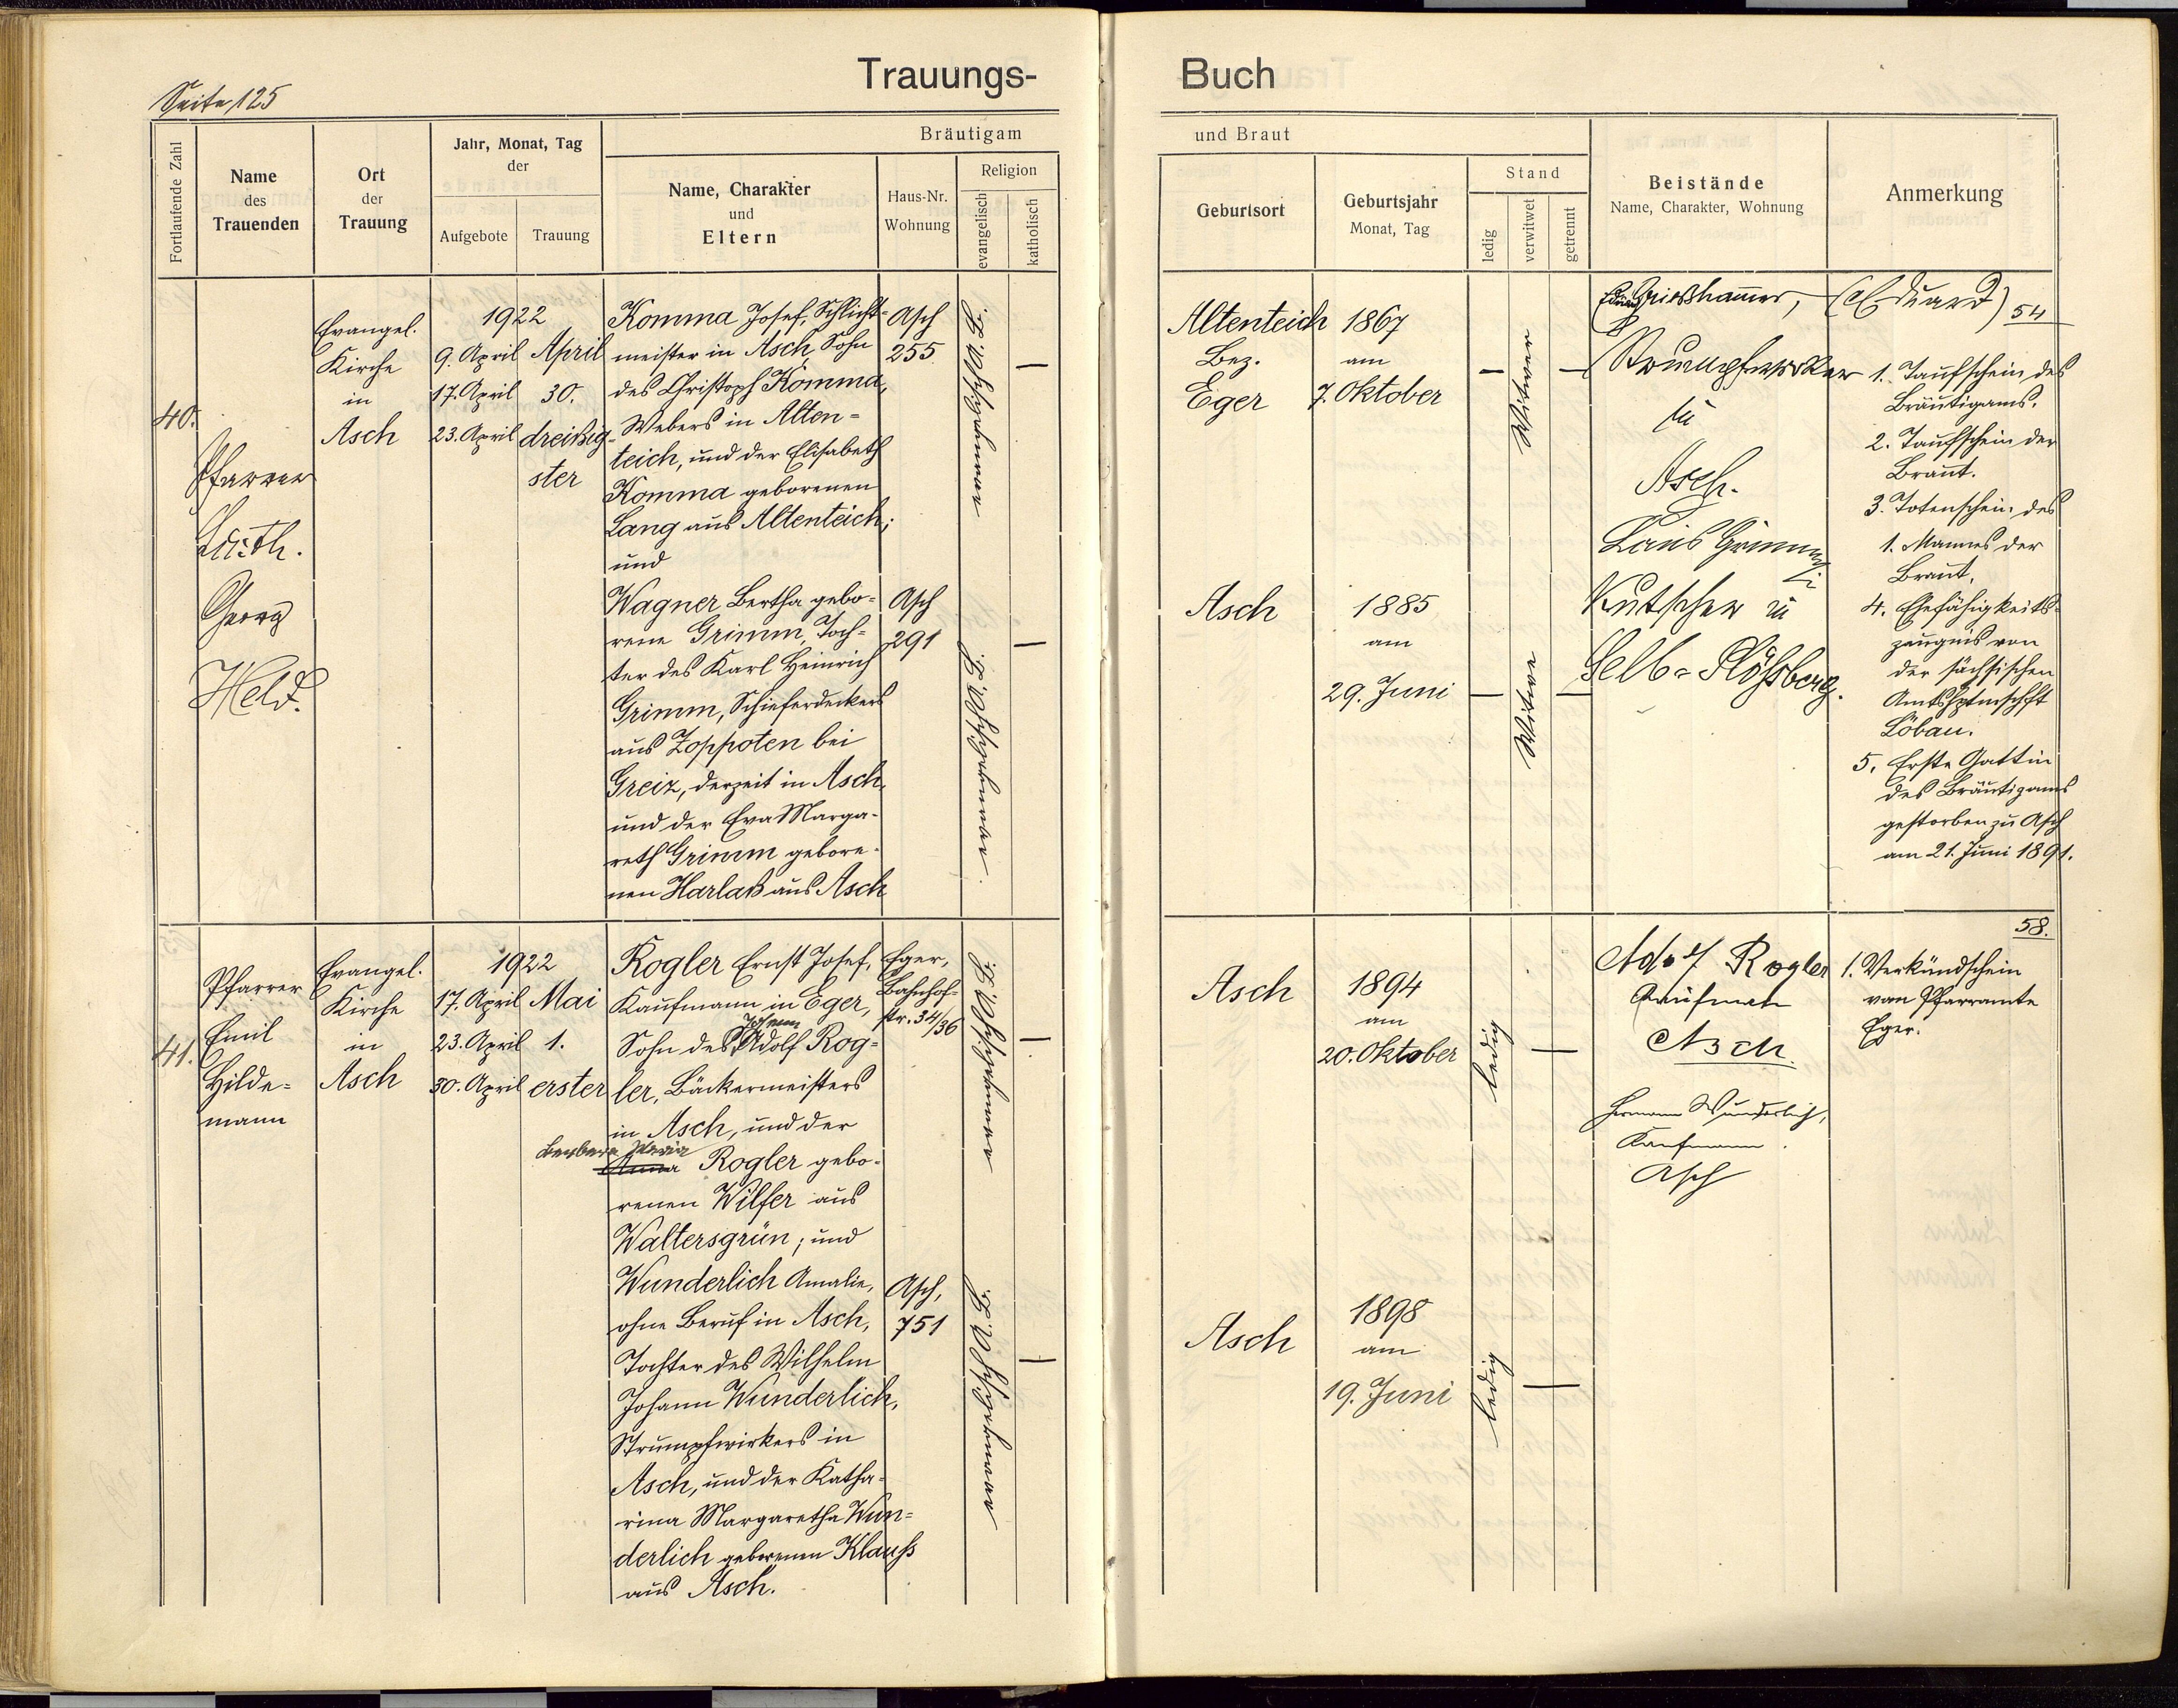 Seite 125
Trauungs-
Buch
Fortlaufende Zahl
Name
des
Trauenden
Ort
der
Trauung
Jahr, Monat, Tag
der
Aufgebote
Trauung
Bräutigam
Name, Charakter
und
Eltern
Haus-Nr.
Wohnung
Religion
evangelisch
katholisch
und Braut
Geburtsort
Geburtsjahr
Monat, Tag
Stand
ledig
verwitwet
getrennt
Beistände
Name, Charakter, Wohnung
Anmerkung
40.
Pfarrer
Lic. th.
Georg
Held.
Evangel.
Kirche
in
Asch
1922
9. April
17. April
23. April
April
30.
dreißig-
ster
Komma Josef, Schlicht-
meister in Asch, Sohn
des Christoph Komma,
Webers in Alten-
teich, und der Elisabeth
Komma geborenen
Lang aus Altenteich;
und
Wagner Bertha gebo-
rene Grimm, Toch-
ter des Karl Heinrich
Grimm, Schieferdeckers
aus Zoppoten bei
Greiz, derzeit in Asch,
und der Eva Marga-
reth Grimm gebore-
nen Harlaß aus Asch
Asch
255
Asch
291
Altenteich
Bez.
Eger
1867
am
7. Oktober
Witwer
Asch
1885
am
29. Juni
Witwe
Grieshammer, (Eduard)
Strumpfwirker
in
Asch.
Louis Grimm
Kutscher in
Selb-Plößberg.
54
1. Taufschein des
Bräutigams.
2. Taufschein der
Braut.
3. Totenschein des
1. Mannes der
Braut.
4. Ehefähigkeits-
zeugnis von
der sächsischen
Amtshptmschft
Löbau.
5. Erste Gattin
des Bräutigams
gestorben zu Asch
am 21. Juni 1891.
41.
Pfarrer
Emil
Hilde-
mann
Evangel.
Kirche
in
Asch
1922
17. April
23. April
30. April
Mai
1.
erster
Rogler Ernst Josef,
Kaufmann in Eger,
Johann
Sohn des Adolf Rog-
ler, Bäckermeisters
in Asch, und der
Barbara Maria
Anna Rogler gebo-
renen Wilfer aus
Waltersgrün; und
Wunderlich Amalie,
ohne Beruf in Asch,
Tochter des Wilhelm
Johann Wunderlich,
Strumpfwirkers in
Asch, und der Katha-
rina Margaretha Wun-
derlich geborenen Klauss
aus Asch.
Eger,
Bahnhof-
str. 34/36
Asch,
751
Asch
1894
am
20. Oktober
ledig
Asch
1898
am
19. Juni
ledig
Adolf Rogler
Kaufmann
Asch
Hermann Wunderlich,
Kaufmann.
Asch
58.
1. Verkündschein
vom Pfarramte
Eger.